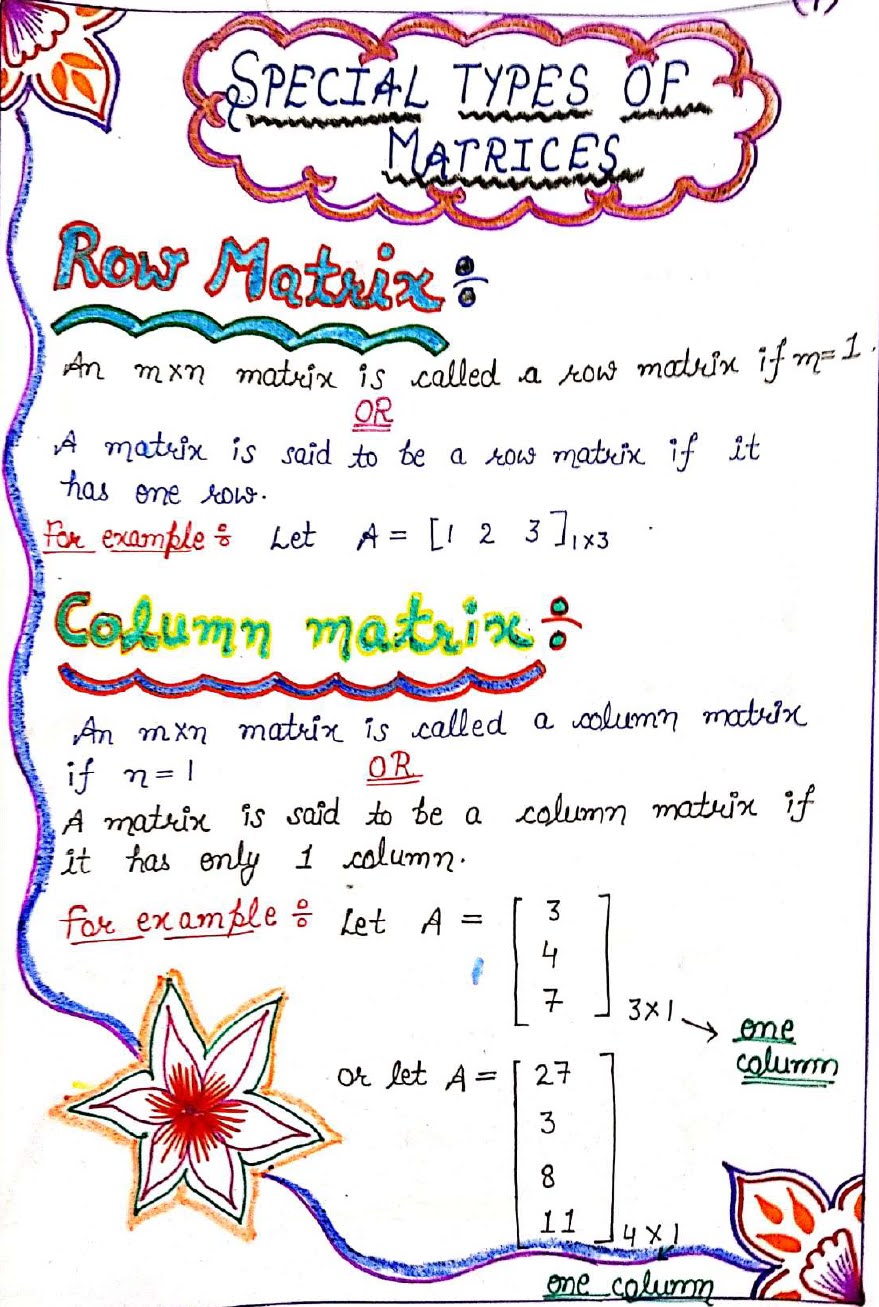 (1)
SPECIAL TYPES OF
MATRICES
Row Matrix÷
An m×n matrix is called a row matrix if m=1.
OR
A matrix is said to be a row matrix if it
has one row.
For example÷ Let A = [1 2 3]1×3
Column matrix÷
An m×n matrix is called a column matrix
if n=1
OR
A matrix is said to be a column matrix if
it has only 1 column.
for example÷ Let A = [
3
4
7
] 3×1 → one
column
or let A = [
27
3
8
11
] 4×1
one column